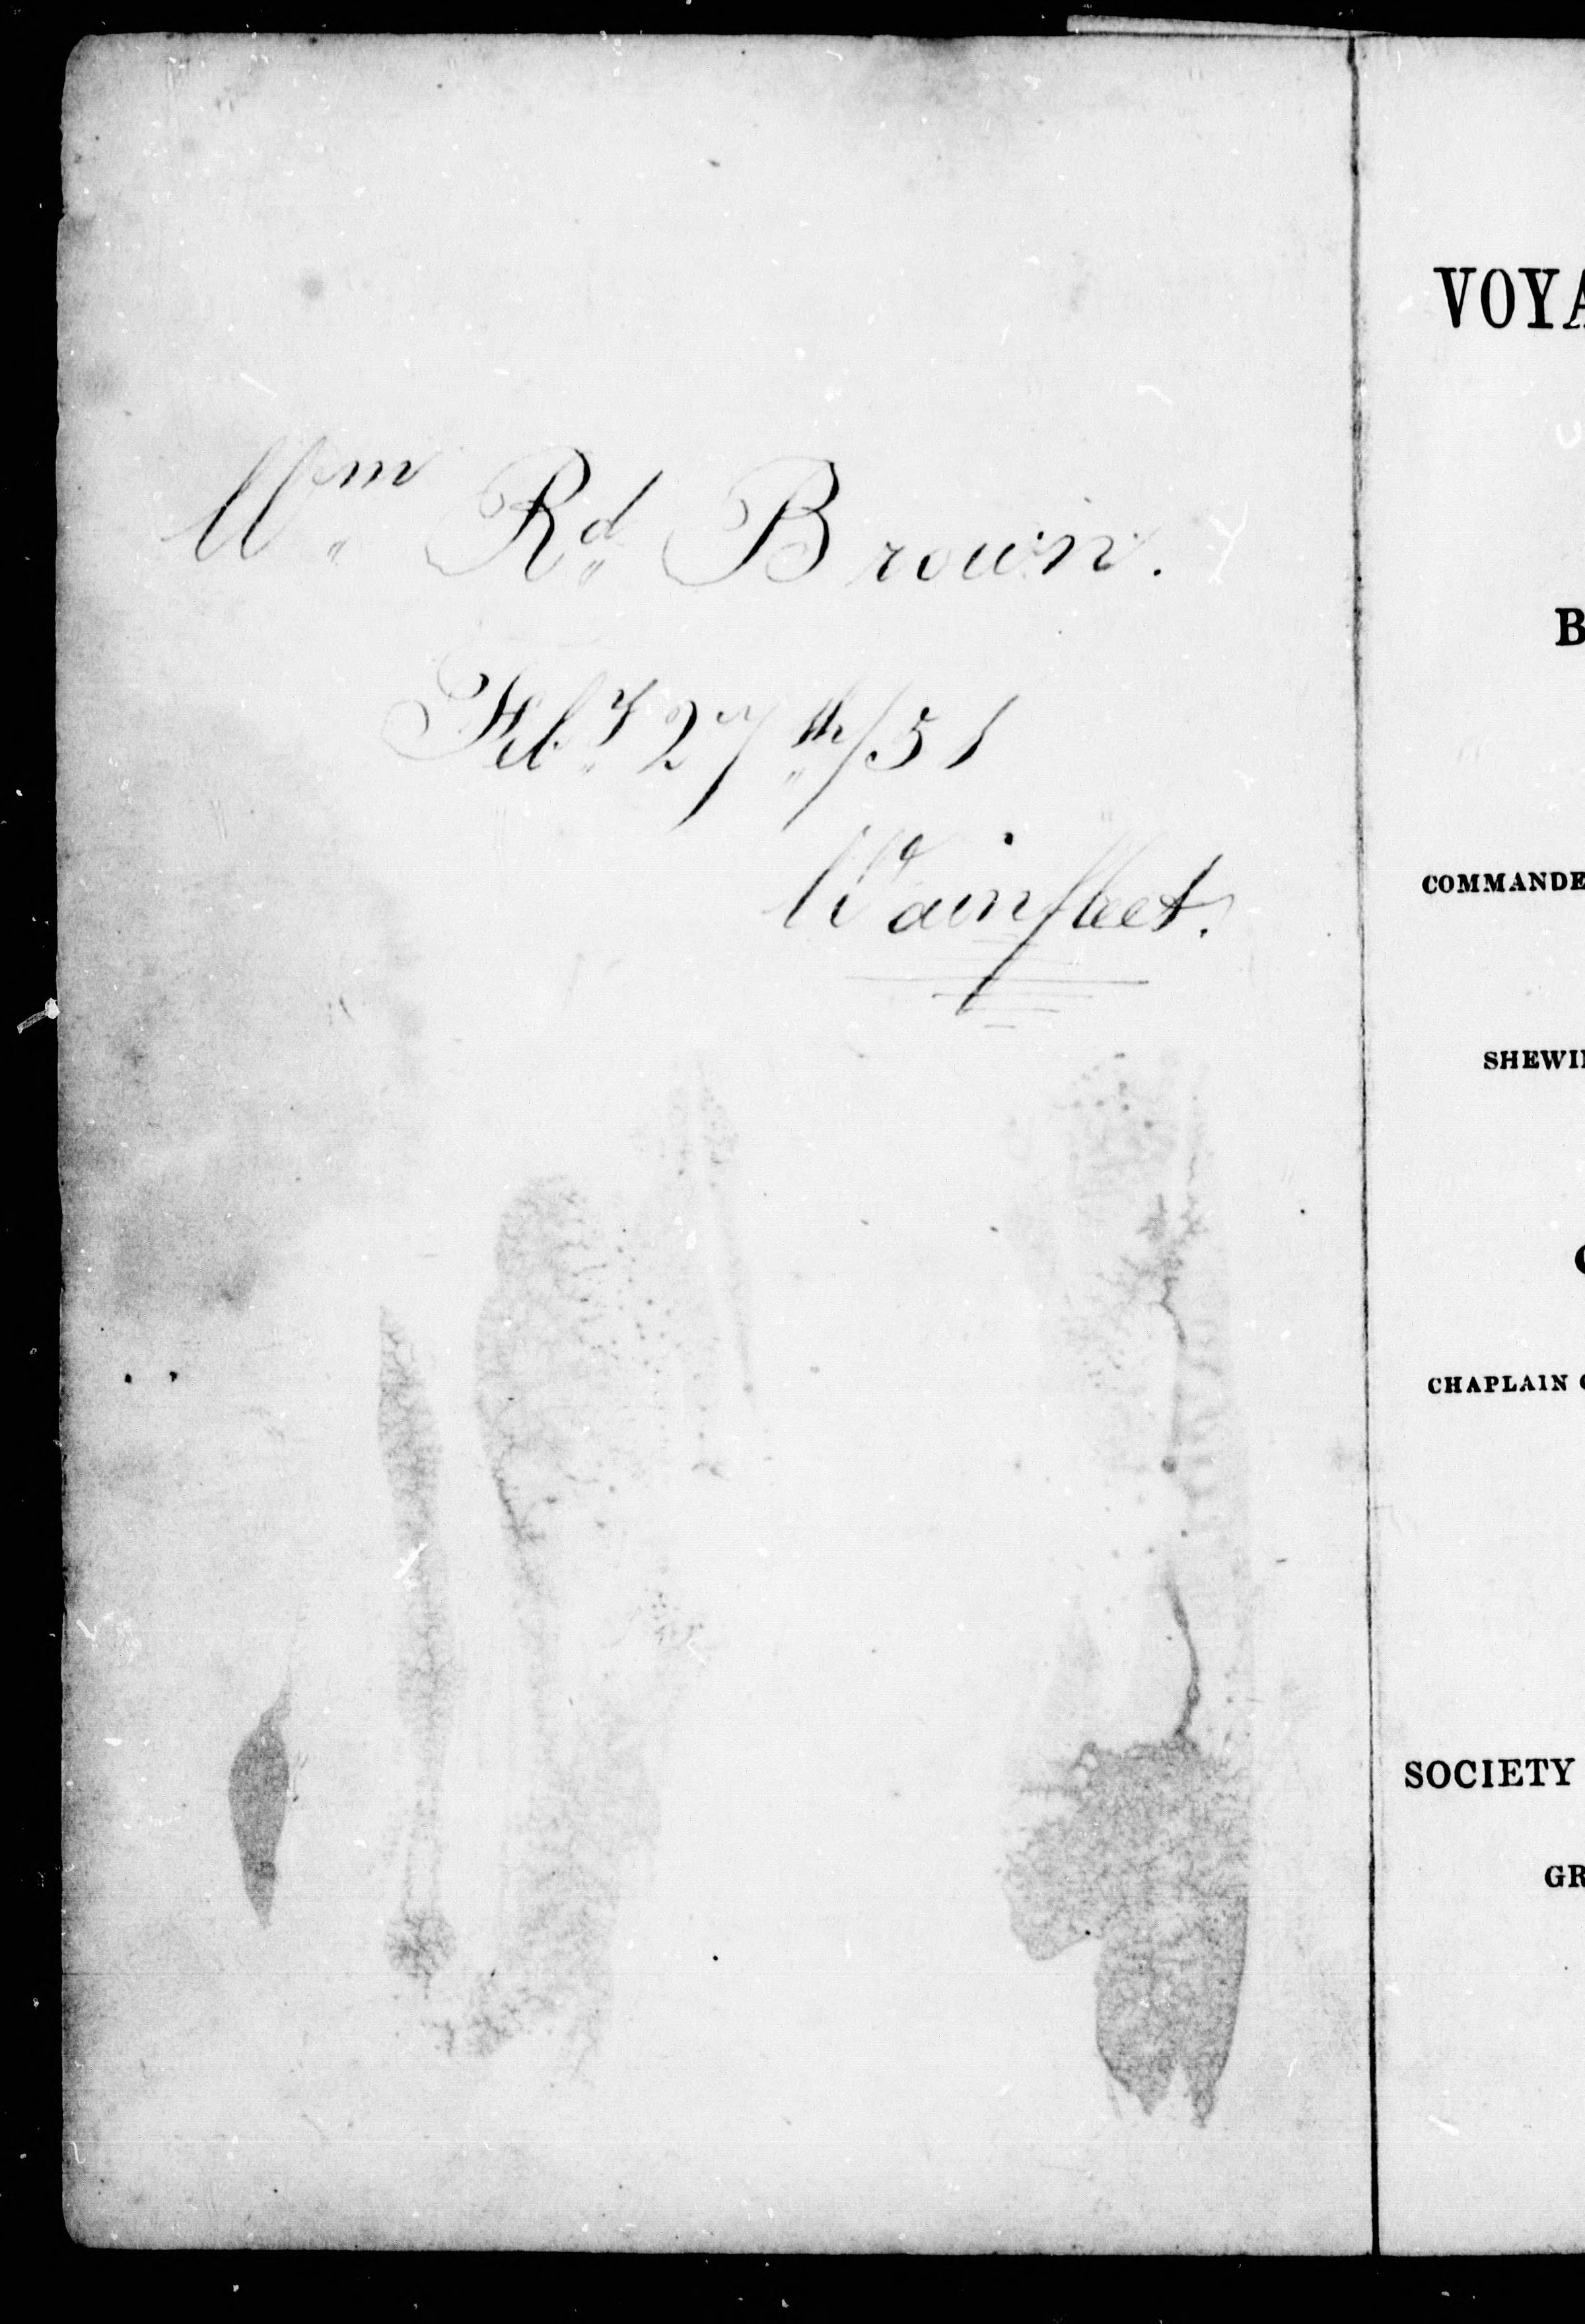 Wm Rd Brown.
Feby 27th/51
Wainfleet.
VOYA
B
COMMANDE
SHEWI
CHAPLAIN
SOCIETY
GR